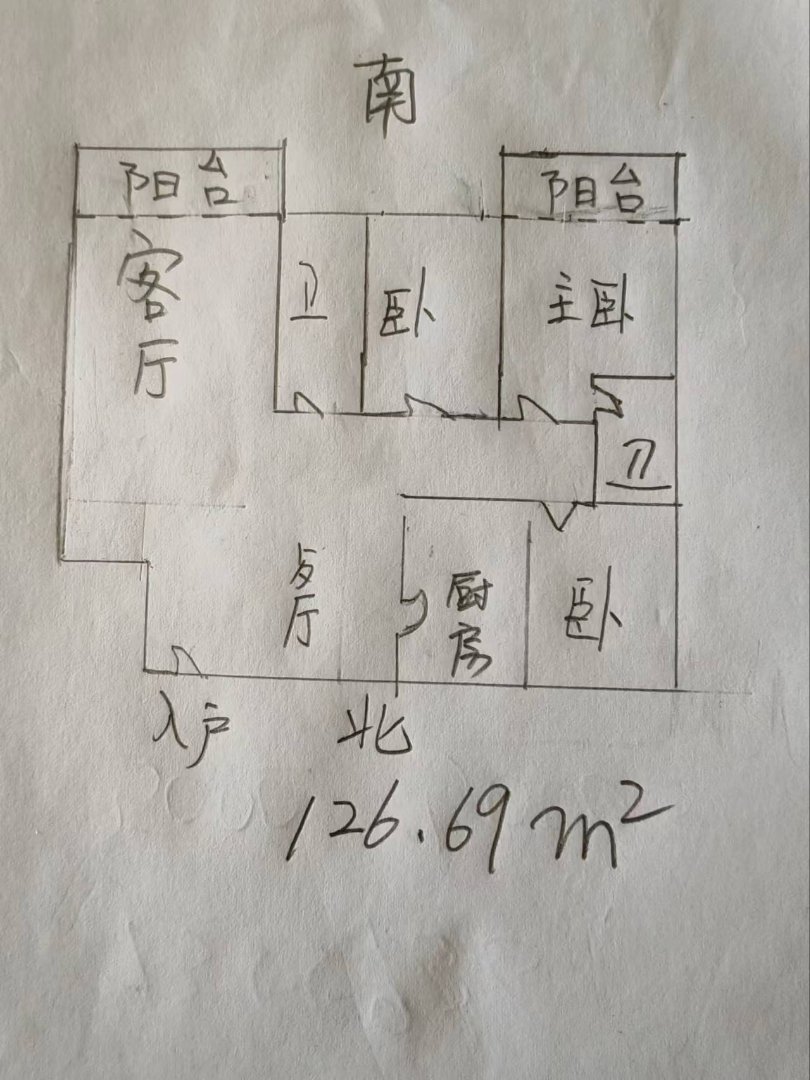 南
阳台
阳台
客厅
卫
卧
主卧
卫
歺厅
厨房
卧
入户
北
126.69 m²